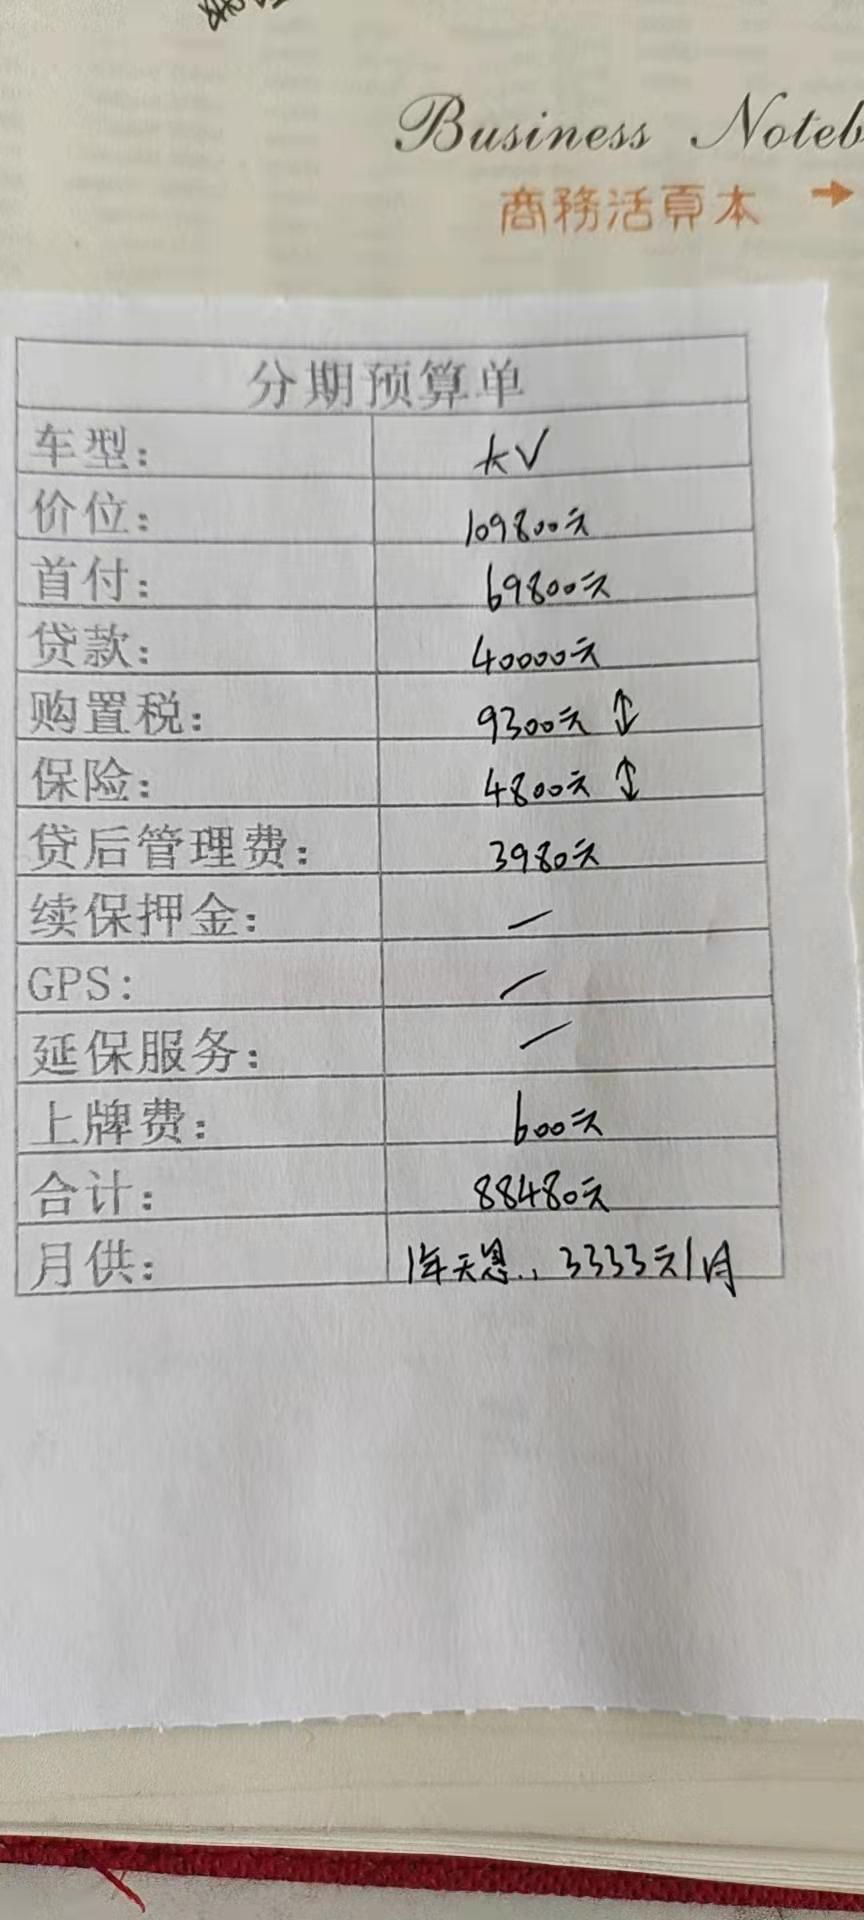 Business Noteb
商務活頁本 →
分期预算单
车型: KV
价位: 109800元
首付: 69800元
贷款: 40000元
购置税: 9300元 ↕
保险: 4800元 ↕
贷后管理费: 3980元
续保押金: /
GPS: /
延保服务: /
上牌费: 600元
合计: 88480元
月供: 1年无息., 3333元/月